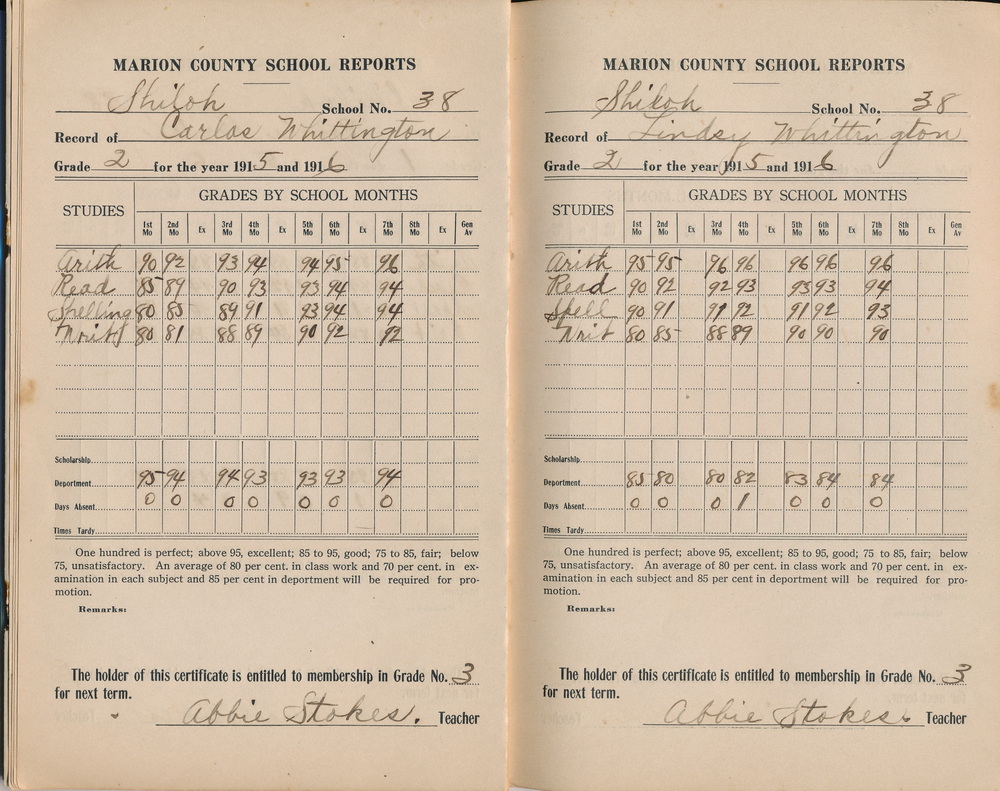 MARION COUNTY SCHOOL REPORTS
Shiloh School No. 38
Record of Carlos Whittington
Grade 2 for the year 1915 and 1916
STUDIES GRADES BY SCHOOL MONTHS
1st Mo 2nd Mo Ex 3rd Mo 4th Mo Ex 5th Mo 6th Mo Ex 7th Mo 8th Mo Ex Gen Av
Arith 90 92 93 94 94 95 96
Read 85 89 90 93 93 94 94
Spelling 80 85 89 91 93 94 94
Writ 80 81 88 89 90 92 92
Scholarship
Department 95 94 94 93 93 93 94
Days Absent 0 0 0 0 0 0 0
Times Tardy
One hundred is perfect; above 95, excellent; 85 to 95, good; 75 to 85, fair; below
75, unsatisfactory. An average of 80 per cent. in class work and 70 per cent. in ex-
amination in each subject and 85 per cent in deportment will be required for pro-
motion.
Remarks:
The holder of this certificate is entitled to membership in Grade No. 3
for next term.
Abbie Stokes. Teacher
MARION COUNTY SCHOOL REPORTS
Shiloh School No. 38
Record of Lindsy Whittington
Grade 2 for the year 1915 and 1916
STUDIES GRADES BY SCHOOL MONTHS
1st Mo 2nd Mo Ex 3rd Mo 4th Mo Ex 5th Mo 6th Mo Ex 7th Mo 8th Mo Ex Gen Av
Arith 95 95 96 96 96 96 96
Read 90 92 92 93 93 93 94
Spell 90 91 91 92 91 92 93
Writ 80 85 88 89 90 90 90
Scholarship
Department 85 80 80 82 83 84 84
Days Absent 0 0 0 1 0 0 0
Times Tardy
One hundred is perfect; above 95, excellent; 85 to 95, good; 75 to 85, fair; below
75, unsatisfactory. An average of 80 per cent. in class work and 70 per cent. in ex-
amination in each subject and 85 per cent in deportment will be required for pro-
motion.
Remarks:
The holder of this certificate is entitled to membership in Grade No. 3
for next term.
Abbie Stokes. Teacher